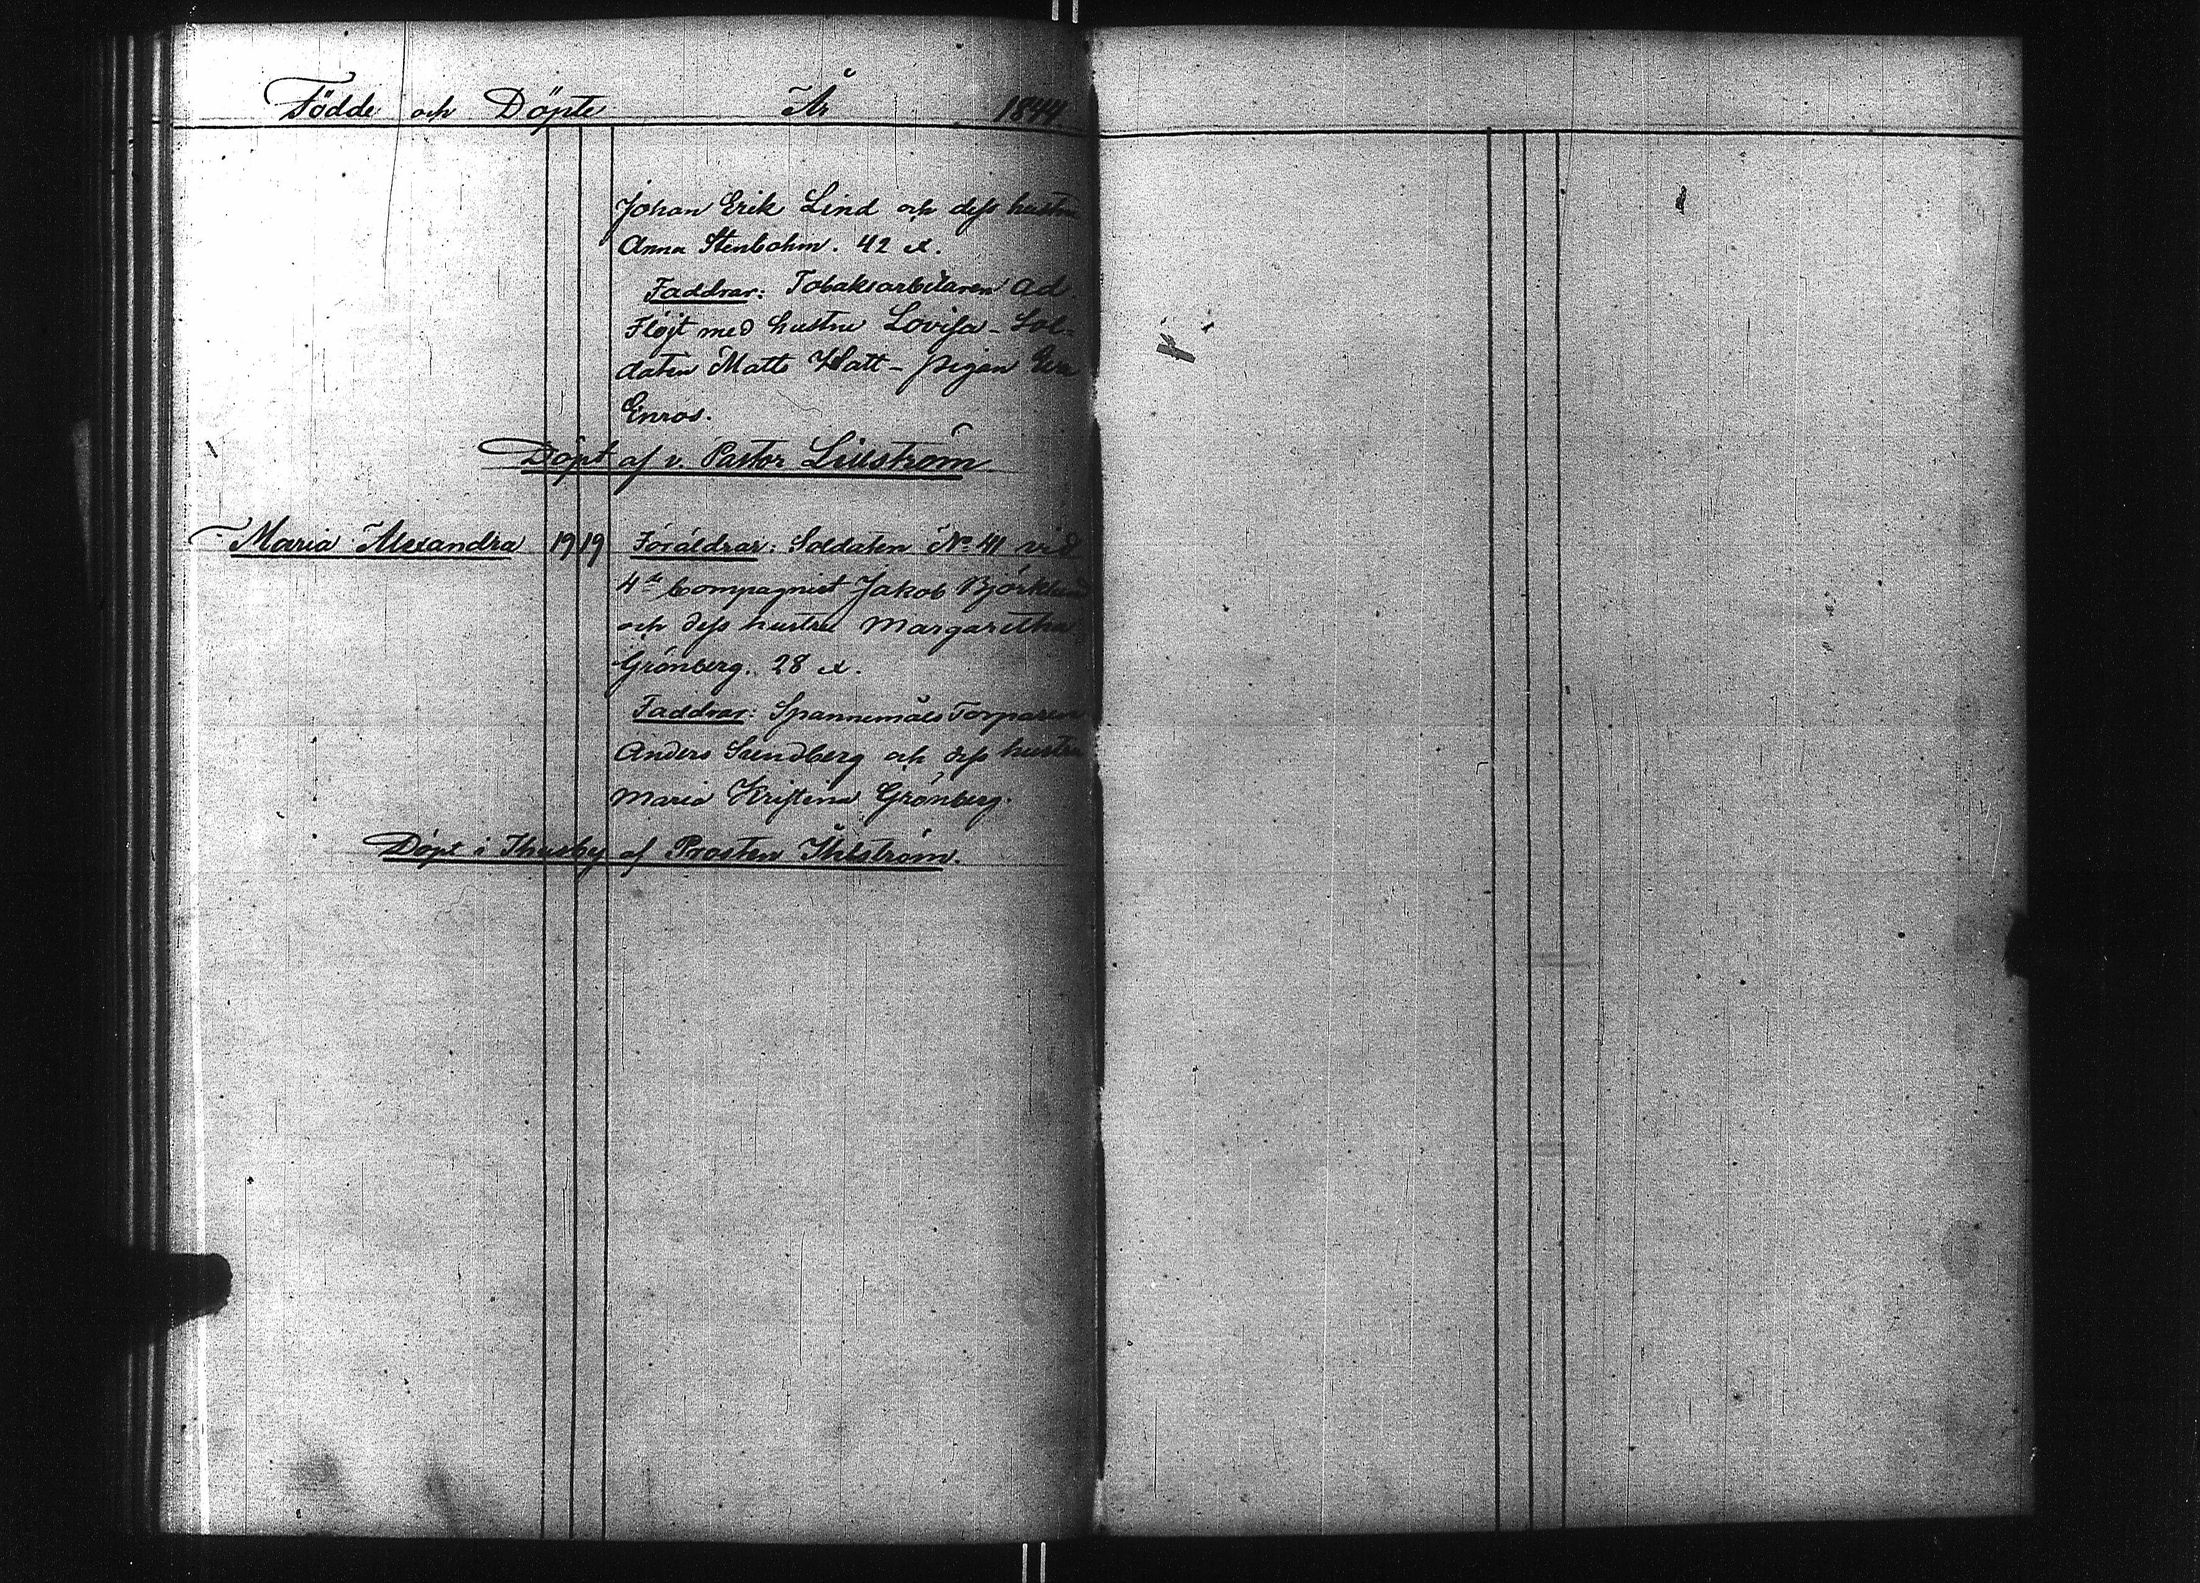 Födde och Döpte År 1844
Johan Erik Lind och dess hustru
Anna Stenbohm. 42 år.
Faddrar: Tobaksarbetaren Ad.
Flöjt med hustru Lovisa - Sol-
daten Matts Hatt - pigan Eva
Enros.
Döpt af v. Pastor Lillström
Maria Alexandra 19 19 Föräldrar: Soldaten No 41 vid
4de Compagniet Jakob Björklund
och dess hustru Margaretha
Grönberg. 28 år.
Faddrar: Spannemåls Torparen
Anders Sundberg och dess hustru
Maria Kristina Grönberg.
Döpt i Thusby af Prosten Åhlström.